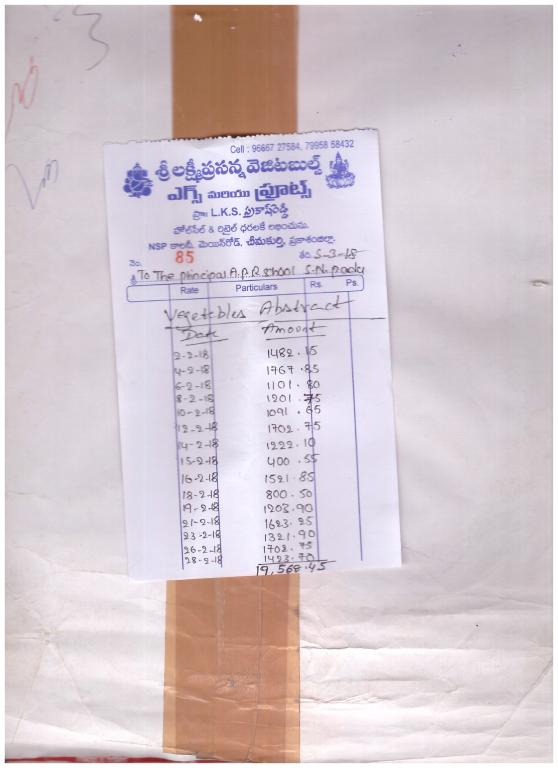 Cell : 96667 27584, 79958 58432
శ్రీ లక్ష్మీప్రసన్న వెజిటబుల్స్
ఎగ్స్ మరియు ఫ్రూట్స్
ప్రొ: L.K.S. ప్రకాష్‌రెడ్డి
హోల్‌సేల్ & రిటైల్ ధరలకే లభించును.
NSP కాలనీ, మెయిన్‌రోడ్, చీమకుర్తి, ప్రకాశంజిల్లా.
నెం. 85 తేది 5-3-18
శ్రీ To The principal A.P.R School S.N.padu
Rate Particulars Rs. Ps.
Vegetables Abstract
Date Amount
2-2-18 1482.15
4-2-18 1767.85
6-2-18 1101.80
8-2-18 1201.75
10-2-18 1091.65
12-2-18 1702.75
14-2-18 1222.10
15-2-18 400.55
16-2-18 1521.85
18-2-18 800.50
19-2-18 1203.90
21-2-18 1623.25
23-2-18 1321.90
26-2-18 1702.75
28-2-18 1423.70
19,568.45